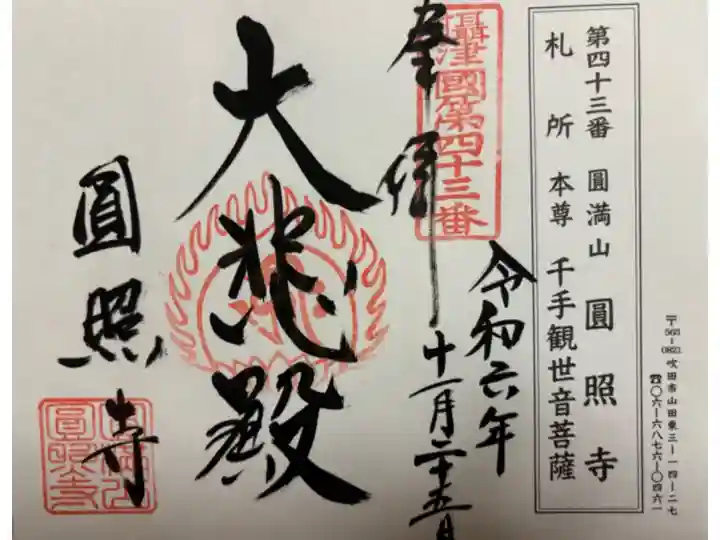 〒565-0821 吹田市山田東三ー一四ー二七
☎〇六ー六八七六ー〇四六一
第四十三番 圓満山 圓照寺
札所本尊 千手観世音菩薩
攝津國第四十三番
奉拝
令和六年
十一月二十五日
大悲殿
圓照寺